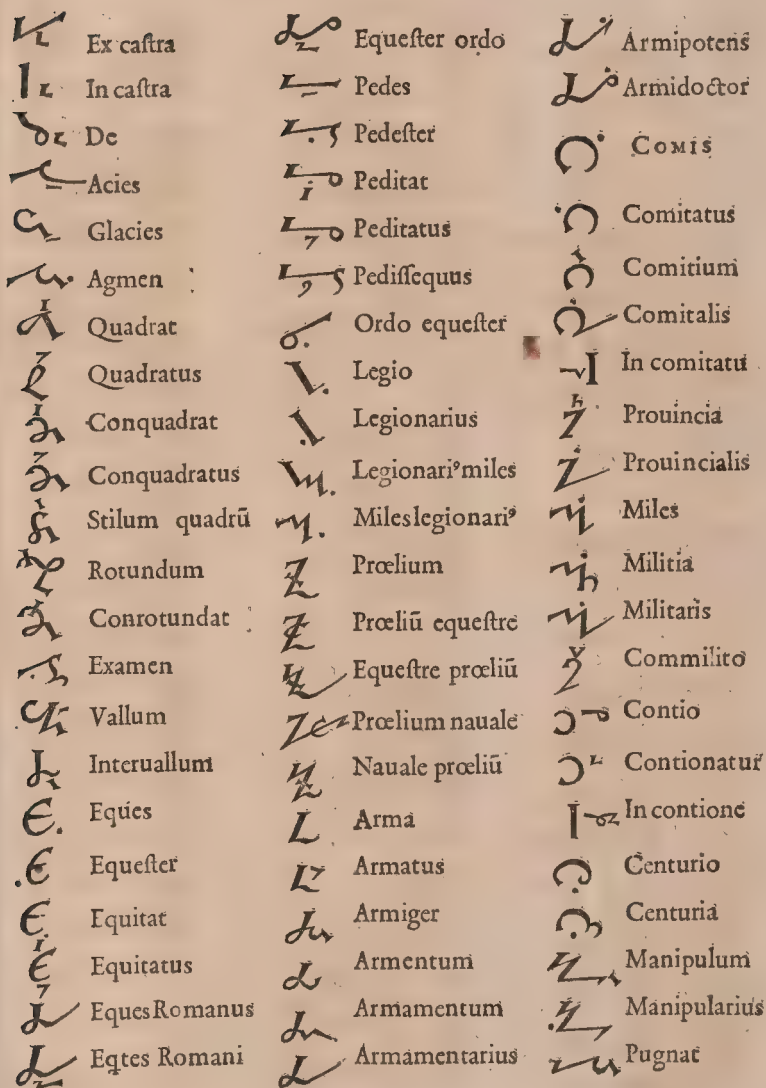 Ex caſtra
In caſtra
De
Acies
Glacies
Agmen :
Quadrat
Quadratus
Conquadrat
Conquadratus
Stilum quadrū
Rotundum
Conrotundat :
Examen
Vallum
Interuallum
Eques
Equeſter
Equitat
Equitatus
Eques Romanus
Eqtes Romani
Equeſter ordo
Pedes
Pedeſter
Peditat
Peditatus
Pediſſequus
Ordo equeſter
Legio
Legionarius
Legionariꝰ miles
Miles legionariꝰ
Prœlium
Prœliū equeſtre
Equeſtre prœliū
Prœlium nauale
Nauale prœliū
Arma
Armatus
Armiger
Armentum
Armamentum
Armamentarius
Armipotens
Armidoctor
COMIS
Comitatus
Comitium
Comitalis
In comitatu
Prouincia
Prouincialis
Miles
Militia
Militaris
Commilito
Contio
Contionatur
In contione
Centurio
Centuria
Manipulum
Manipularius
Pugnat